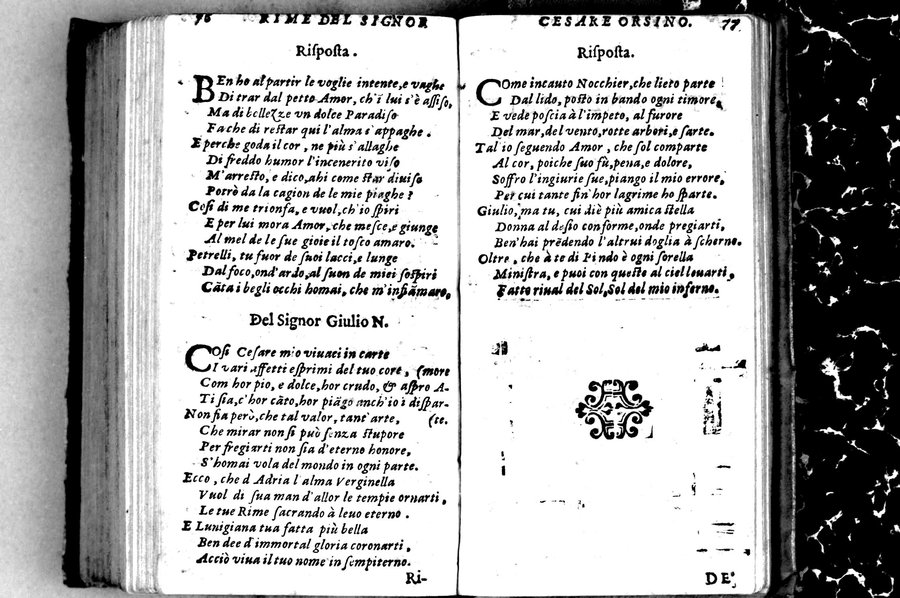 76 RIME DEL SIGNOR
Riſpoſta.
BEn ho al partir le voglie intente, e vaghe
Di trar dal petto Amor, ch'i lui s'è aſſiſo,
Ma di bellezze vn dolce Paradiſo
Fa che di reſtar quì l'alma s'appaghe.
E perche goda il cor, ne più s'allaghe
Di freddo humor l'incenerito viſo
M'arreſto, e dico, ahi come ſtar diuiſo
Potrò da la cagion de le mie piaghe?
Coſi di me trionfa, e vuol, ch'io ſpiri
E per lui mora Amor, che meſce, e giunge
Al mel de le ſue gioie il toſco amaro.
Petrelli, tu fuor de ſuoi lacci, e lunge
Dal foco, ond'ardo, al ſuon de miei ſoſpiri
Cāta i begli occhi homai, che m'infiāmaro.
Del Signor Giulio N.
COſi Ceſare mio viuaci in carte
I vari affetti eſprimi del tuo core, (more
Com hor pio, e dolce, hor crudo, & aſpro A-
Ti ſia, c'hor cāto, hor piāgo anch'io i diſpar-
Non fia però, che tal valor, tant'arte, (te.
Che mirar non ſi può ſenza ſtupore
Per fregiarti non ſia d'eterno honore,
S'homai vola del mondo in ogni parte.
Ecco, che d'Adria l'alma Verginella
Vuol di ſua man d'allor le tempie ornarti,
Le tue Rime ſacrando à leuo eterno.
E Lunigiana tua fatta più bella
Ben dee d'immortal gloria coronarti,
Acciò viua il tuo nome in ſempiterno.
Ri-
CESARE ORSINO. 77
Riſpoſta.
COme incauto Nocchier, che lieto parte
Dal lido, poſto in bando ogni timore,
E vede poſcia à l'impeto, al furore
Del mar, del vento, rotte arbori, e ſarte.
Tal'io ſeguendo Amor, che ſol comparte
Al cor, poiche ſuo fù, pena, e dolore,
Soffro l'ingiurie ſue, piango il mio errore,
Per cui tante fin'hor lagrime hò ſparte.
Giulio, ma tu, cui diè più amica ſtella
Donna al deſio conforme, onde pregiarti,
Ben'hai prēdendo l'altrui doglia à ſcherno.
Oltre, che à te di Pindo è ogni ſorella
Miniſtra, e puoi con queſte al ciel leuarti,
Fatto riual del Sol, Sol del mio inferno.
DE'